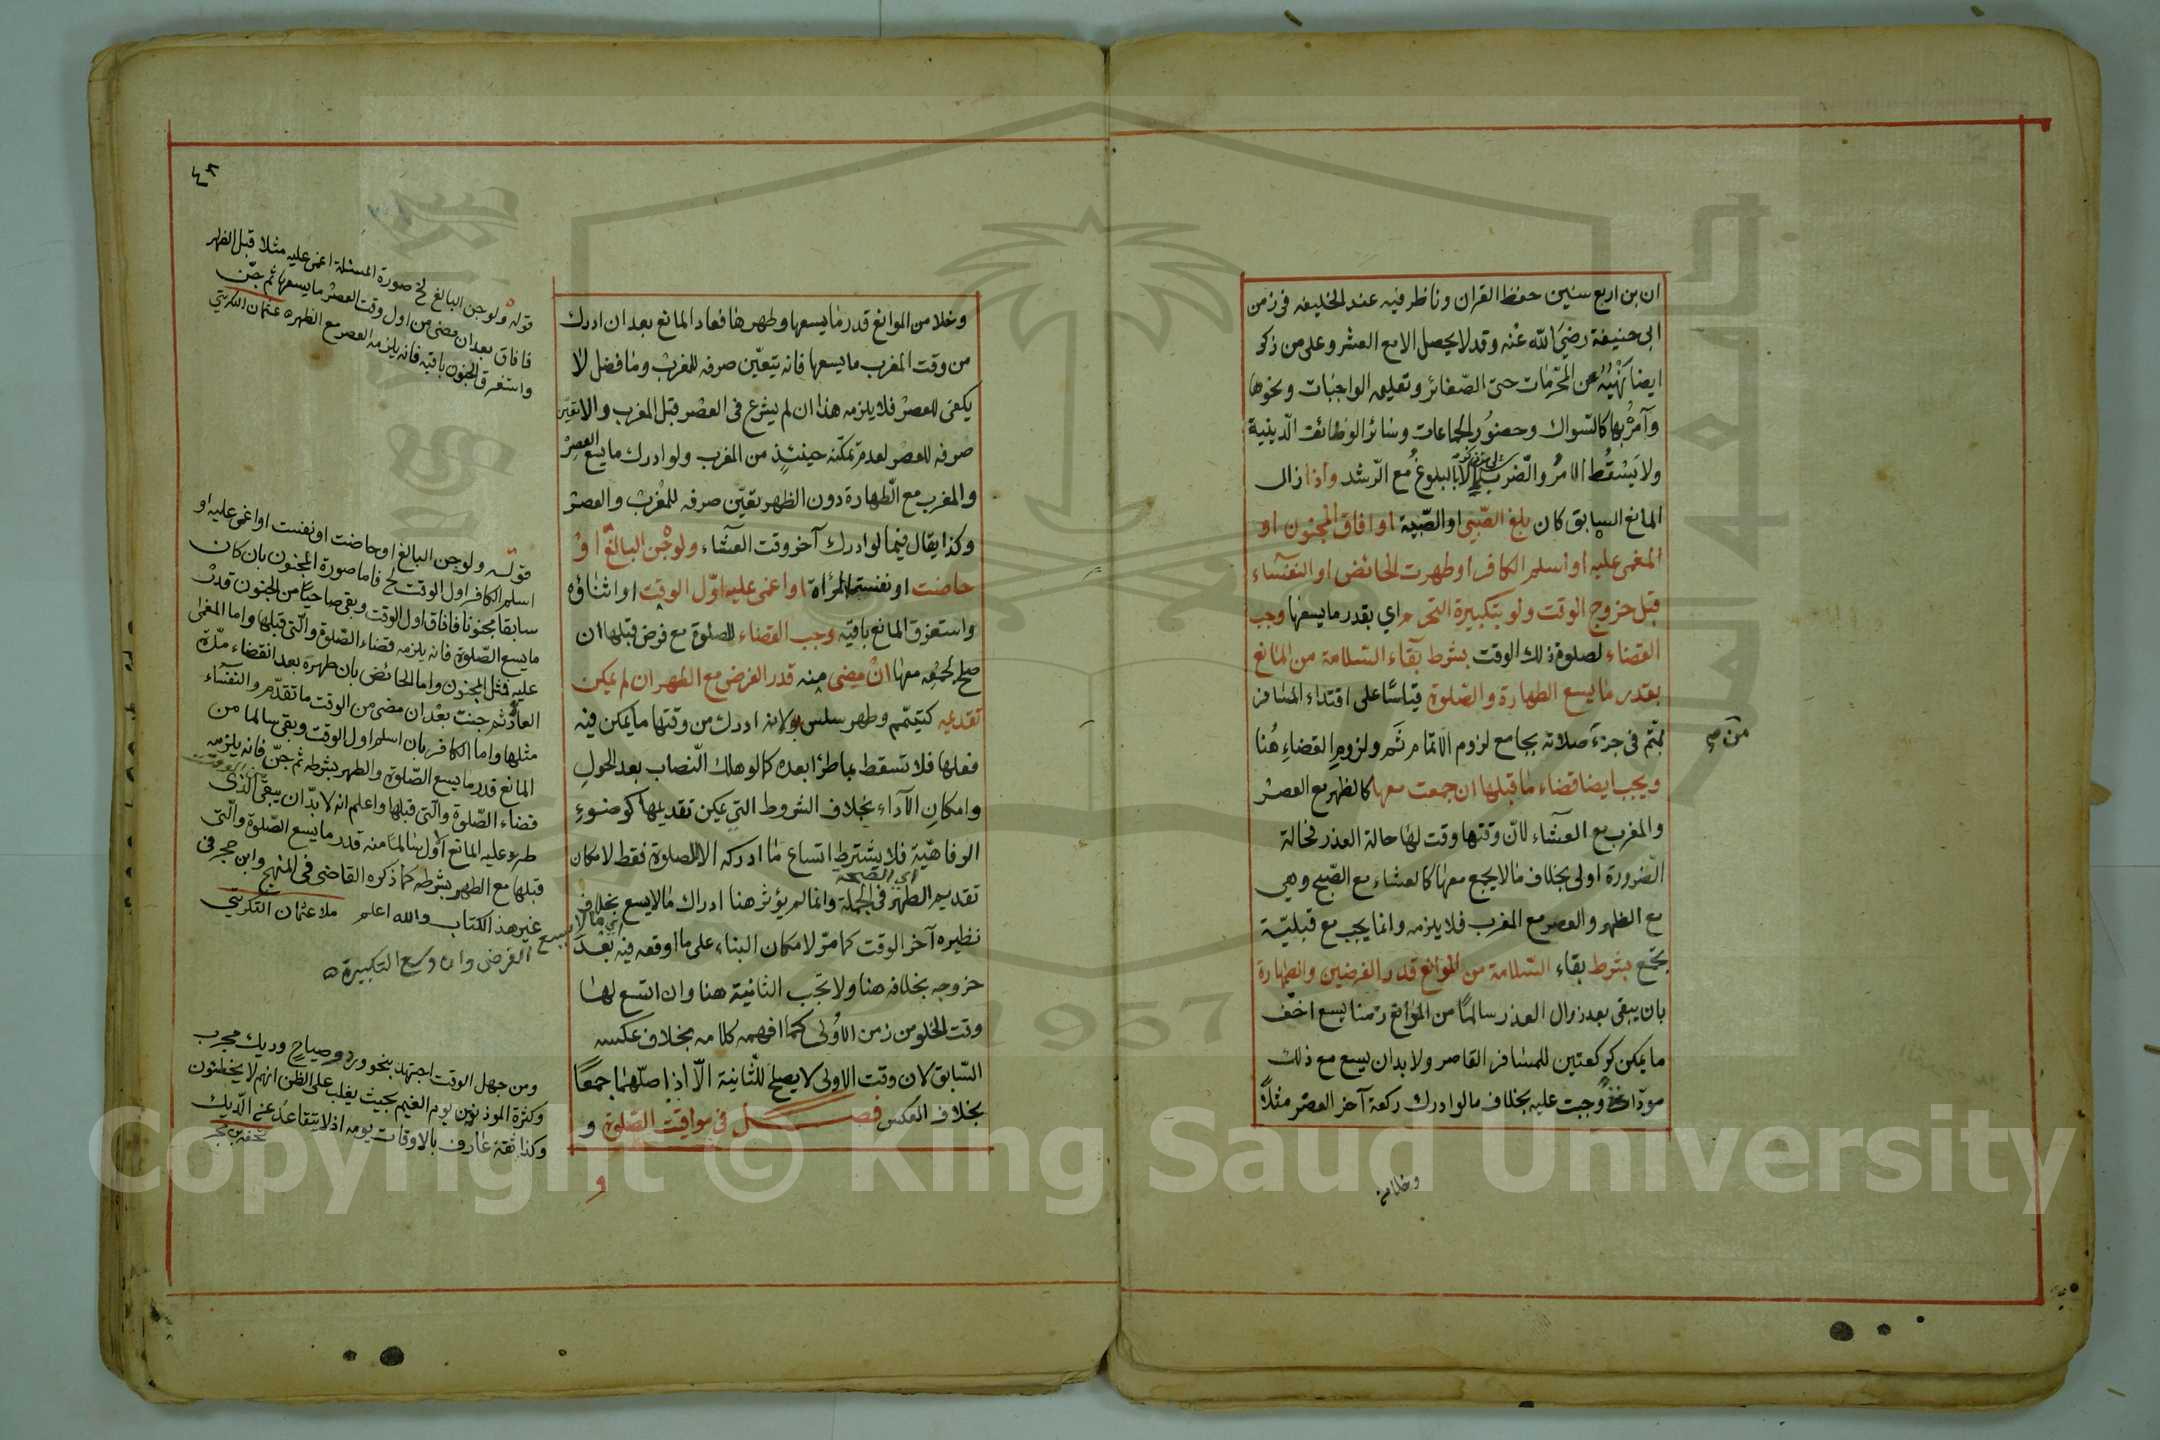 ان بن اربع سنين حفظ القران وناظر فيه عند الخليفه في زمن
ابى حنيفة رضي الله عنه وقد لا يحصل الا مع العشر وعلى من ذكر
ايضا نهيه عن المحرمات حتى الصغائر وتعليمه الواجبات ونحوها
وآمره بها كالسواك وحضور الجماعات وسائر الوظائف الدينية
ولا يسقط الامر والضرب الا بالبلوغ مع الرشد واذا زال
المانع السابق كان بلغ الصبي او الصبية او افاق المجنون او
المغمى عليه او اسلم الكافر او طهرت الحائض او النفساء
قبل خروج الوقت ولو بتكبيرة التحرم اي بقدر ما يسعها وجب
القضاء لصلوة ذلك الوقت بشرط بقاء السلامة من المانع
بقدر ما يسع الطهارة والصلوة قياسا على اقتداء المسافر
بمتم في جزء صلاته بجامع لزوم الاتمام ثم ولزوم القضاء هنا
من صح
ويجب ايضا قضاء ما قبلها ان جمعت معها كالظهر مع العصر
والمغرب مع العشاء لان وقتها وقت لها حالة العذر فحالة
الضرورة اولى بخلاف ما لا يجمع معها كالعشاء مع الصبح وهي
مع الظهر والعصر مع المغرب فلا يلزمه وانما يجب مع قبليّة
يجمع بشرط بقاء السلامة من الموانع قدر الفرضين والطهارة
بان يبقى بعد زوال العذر سالما من الموانع زمنا يسع اخف
ما يمكن كركعتين للمسافر القاصر ولا بد ان يسع مع ذلك
موداة وجبت عليه بخلاف ما لو ادرك ركعة آخر العصر مثلا
وخلا من
٤٢
وخلا من الموانع قدر ما يسعها وطهرها فعاد المانع بعد ان ادرك
من وقت المغرب ما يسعها فانه يتعين صرفه للمغرب وما فضل لا
يكفى للعصر فلا يلزمه هذا ان لم يشرع في العصر قبل المغرب والا تعين
صرفه للعصر لعدم تمكنه حينئذ من المغرب ولو ادرك ما يسع العصر
والمغرب مع الطهارة دون الظهر تعين صرفه للمغرب والعصر
وكذا يقال فيما لو ادرك آخر وقت العشاء ولو جن البالغ او
حاضت او نفست المرأة او اغمى عليه اول الوقت او اثناؤه
واستغرق المانع باقيه وجب القضاء للصلوة مع فرض قبلها ان
صلح لجمعه معها ان مضى منه قدر الفرض مع الطهر ان لم يمكن
تقديمه كتيمم وطهر سلس بول لانه ادرك من وقتها ما يمكن فيه
فعلها فلا تسقط بما طرأ بعده كما لو هلك النصاب بعد الحول
وامكان الآداء بخلاف الشروط التي يمكن تقديمها كوضوء
الرفاهية فلا يشترط اتساع ما ادركه الا للصلوة فقط لامكان
تقديم الطهر في الجملة وانما لم يؤثر هنا ادراك ما لا يسع بخلاف
اي الصحة
نظيره آخر الوقت كما مر لامكان البناء على ما اوقعه فيه بعد
خروجه بخلافه هنا ولا تجب الثانية هنا وان اتسع لها
وقت الخلو من زمن الاولى كما افهمه كلامه بخلاف عكسه
السابق لان وقت الاولى لا يصلح للثانية الا اذا صلهما جمعا
بخلاف العكس فصل في مواقيت الصلوة و
و
قوله ولو جن البالغ الخ صورة المسئلة اغمى عليه مثلا قبل الظهر
فافاق بعد ان مضى من اول وقت العصر ما يسعها ثم جن
واستغرق الجنون باقيه فانه يلزمه العصر مع الظهر ه عثمان التكريتي
قوله ولو جن البالغ او حاضت او نفست او اغمى عليه او
اسلم الكافر اول الوقت الخ فاما صورة المجنون بان كان
سابقا مجنونا فافاق اول الوقت وبقى صاحيا من الجنون قدر
ما يسع الصلوة فانه يلزمه قضاء الصلوة والتي قبلها واما المغمى
عليه فمثل المجنون واما الحائض بان طهرة بعد انقضاء مدة
العادة ثم جنت بعد ان مضى من الوقت ما تقدم والنفساء
مثلها واما الكافر بان اسلم اول الوقت وبقى سالما من
المانع قدر ما يسع الصلوة والطهر بشرطه ثم جن فانه يلزمه
قضاء الصلوة والتي قبلها واعلم انه لا بد ان يبقى الذى
طرء عليه المانع اولا سالما منه قدر ما يسع الصلوة والتي
قبلها مع الطهر بشرطه كما ذكره القاضى في المنهج وابن حجر في
غير هذا الكتاب والله اعلم ملا عثمان التكريتي
اي ما لا يسع الفرض وان وسع التكبيرة ه
ومن جهل الوقت اجتهد بنحو ورد وصياح وديك مجرب
وكثرة الموذنين يوم الغيم بحيث يغلب على الظن انهم لا يخطئون
وكذا ثقة عارف بالاوقات يومه اذ لا يتقاعد عن الديك
تحفة بن حجر